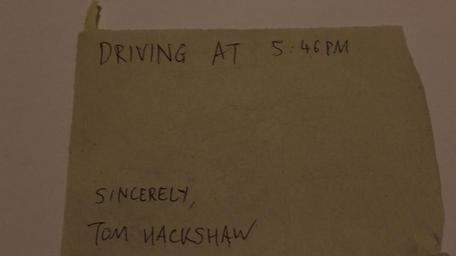 DRIVING AT 5:46PM
SINCERELY,
TOM HACKSHAW